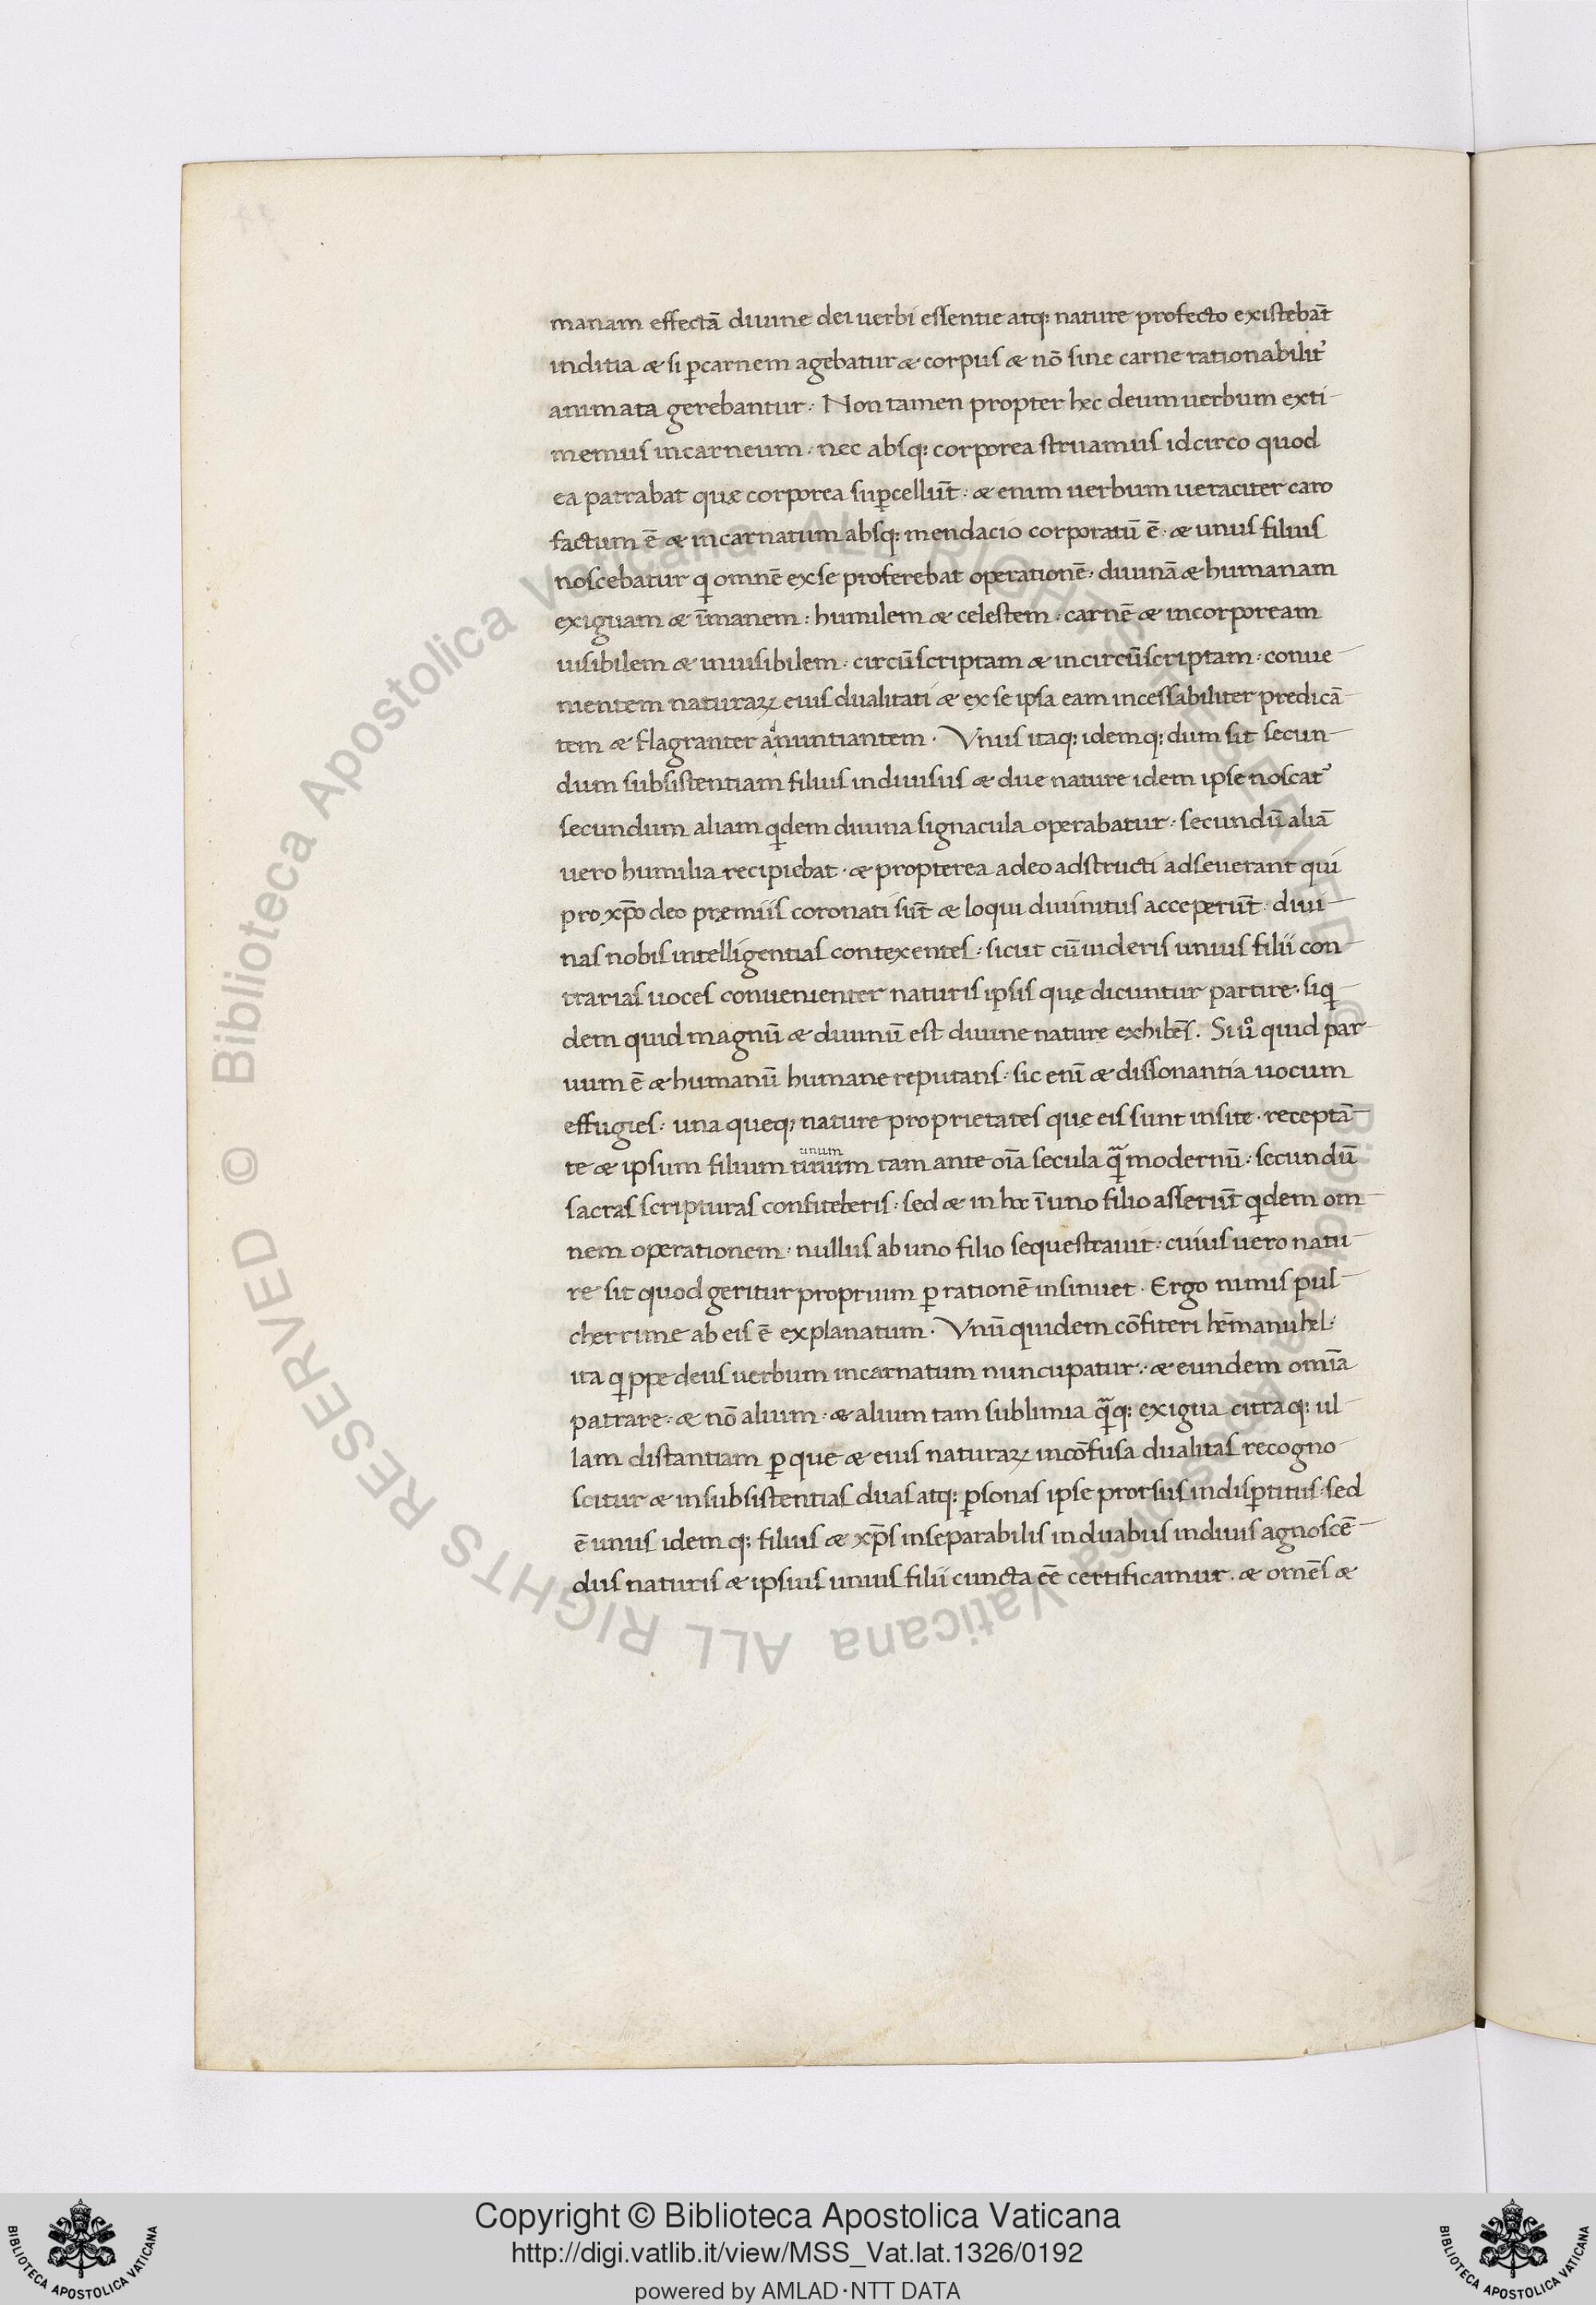 manam effectā diuine dei uerbi essentie atq: nature profecto existebāt
inditia æ si p̄ carnem agebatur æ corpus æ nō sine carne rationabilit᾽
animata gerebantur. Non tamen propter hęc deum uerbum exti-
memus incarneum. nec absq: corporea struamus idcirco quod
ea patrabat quę corporea sup̄cellūt. æ enim uerbum ueraciter caro
factum ē æ incarnatum absq: mendacio corporatū ē. æ unus filius
noscebatur q̄ omnē ex se proferebat operationē. diuinā æ humanam
exiguam æ īmanem: humilem æ celestem. carnē æ incorpoream
uisibilem æ inuisibilem. circūscriptam æ incircūscriptam. conue-
nientem naturaꝝ eius dualitati æ ex se ipsa eam incessabiliter predicā-
tem æ flagranter anuntiantem. Vnus itaq: idemq: dum sit secun-
dum subsistentiam filius indiuisus æ due nature idem ipse noscat᾽
secundum aliam qdem diuina signacula operabatur. secundū aliā
uero humilia recipiebat. æ propterea adeo adstructi adseuerant qui
pro xp̄o deo pręmiis coronati sūt æ loqui diuinitus acceperūt. diui-
nas nobis intelligentias contexentes. sicut cū uideris unius filii con-
trarias uoces conuenienter naturis ipsis quę dicuntur partire. siq-
dem quid magnū æ diuinū est diuine nature exhibēs. Si uº quid par-
uum ē æ humanū humane reputans. sic enī æ dissonantia uocum
effugies. una queq; nature proprietates quę eis sunt insite. receptā-
te æ ipsum filium unum
uirum tam ante oīa secula quā modernū. secundū
sacras scripturas confiteberis. sed æ in hoc ī uno filio asserūt qdem om-
nem operationem. nullus ab uno filio sequestrauit. cuius uero natu-
re sit quod geritur proprium p̄ rationē insinuet. Ergo nimis pul-
cherrime ab eis ē explanatum. Vnū quidem cōfiteri hēmanuhel.
ita qppe deus uerbum incarnatum nuncupatur. æ eundem omīa
patrare. æ nō alium. æ alium tam sublimia quāq: exigua citraq: ul-
lam distantiam p̄ que æ eius naturaꝝ incōfusa dualitas recogno-
scitur æ in subsistentias duas atq: p̄sonas ipse prorsus indisp̄titus. sed
ē unus idemq: filius æ xp̄s inseparabilis in duabus indiuis agnoscē-
dus naturis æ ipsius unius filii cuncta eē certificamur. æ omēs æ
Copyright © Biblioteca Apostolica Vaticana
http://digi.vatlib.it/view/MSS_Vat.lat.1326/0192
powered by AMLAD·NTT DATA
BIBLIOTECA APOSTOLICA VATICANA
BIBLIOTECA APOSTOLICA VATICANA
© Biblioteca Apostolica Vaticana ALL RIGHTS RESERVED
© Biblioteca Apostolica Vaticana ALL RIGHTS RESERVED